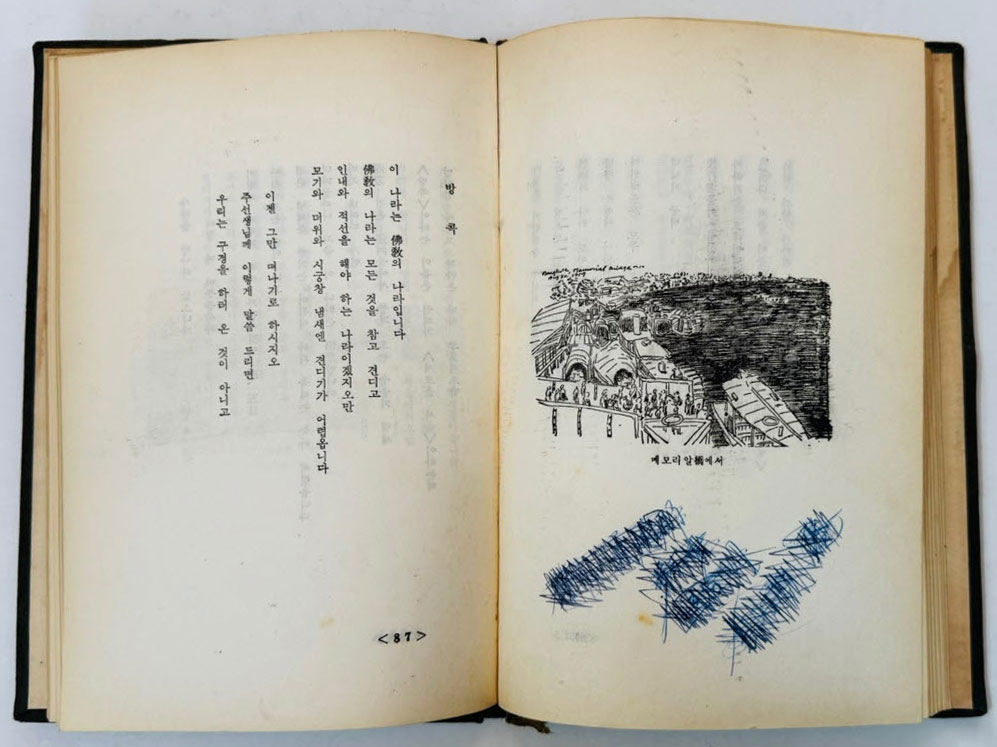 Memorial
메모리알橋에서
방콕
이 나라는 佛敎의 나라입니다
佛敎의 나라는 모든 것을 참고 견디고
인내와 적선을 해야 하는 나라이겠지오만
모기와 더위와 시궁창 냄새엔 견디기가 어렵옵니다
이젠 그만 떠나기로 하시지오
주선생님께 이렇게 말씀 드리면
우리는 구경을 하러 온 것이 아니고
<87>